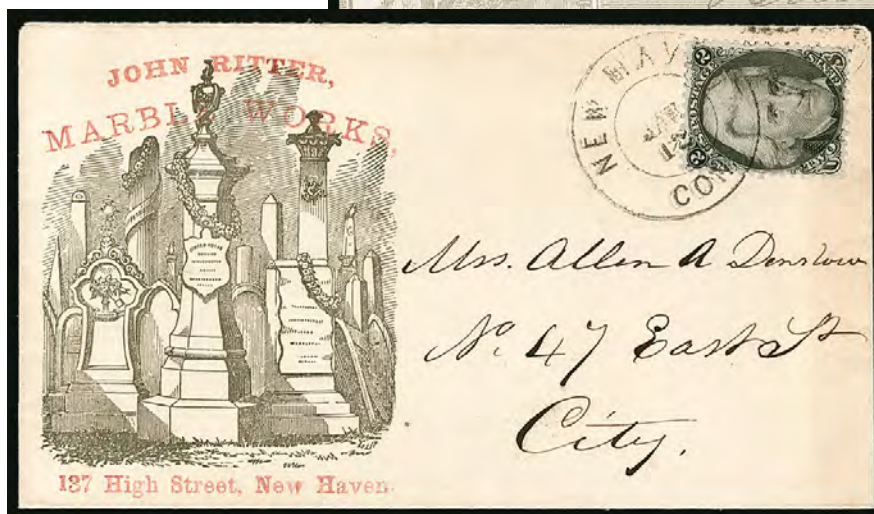 JOHN RITTER,
MARBLE WORKS,
137 High Street, New Haven.
NEW HAV
CON
JAN
2
2
U.S. POSTAGE
TWO
Mrs. Allen A Denslow
No. 47 East St
City.